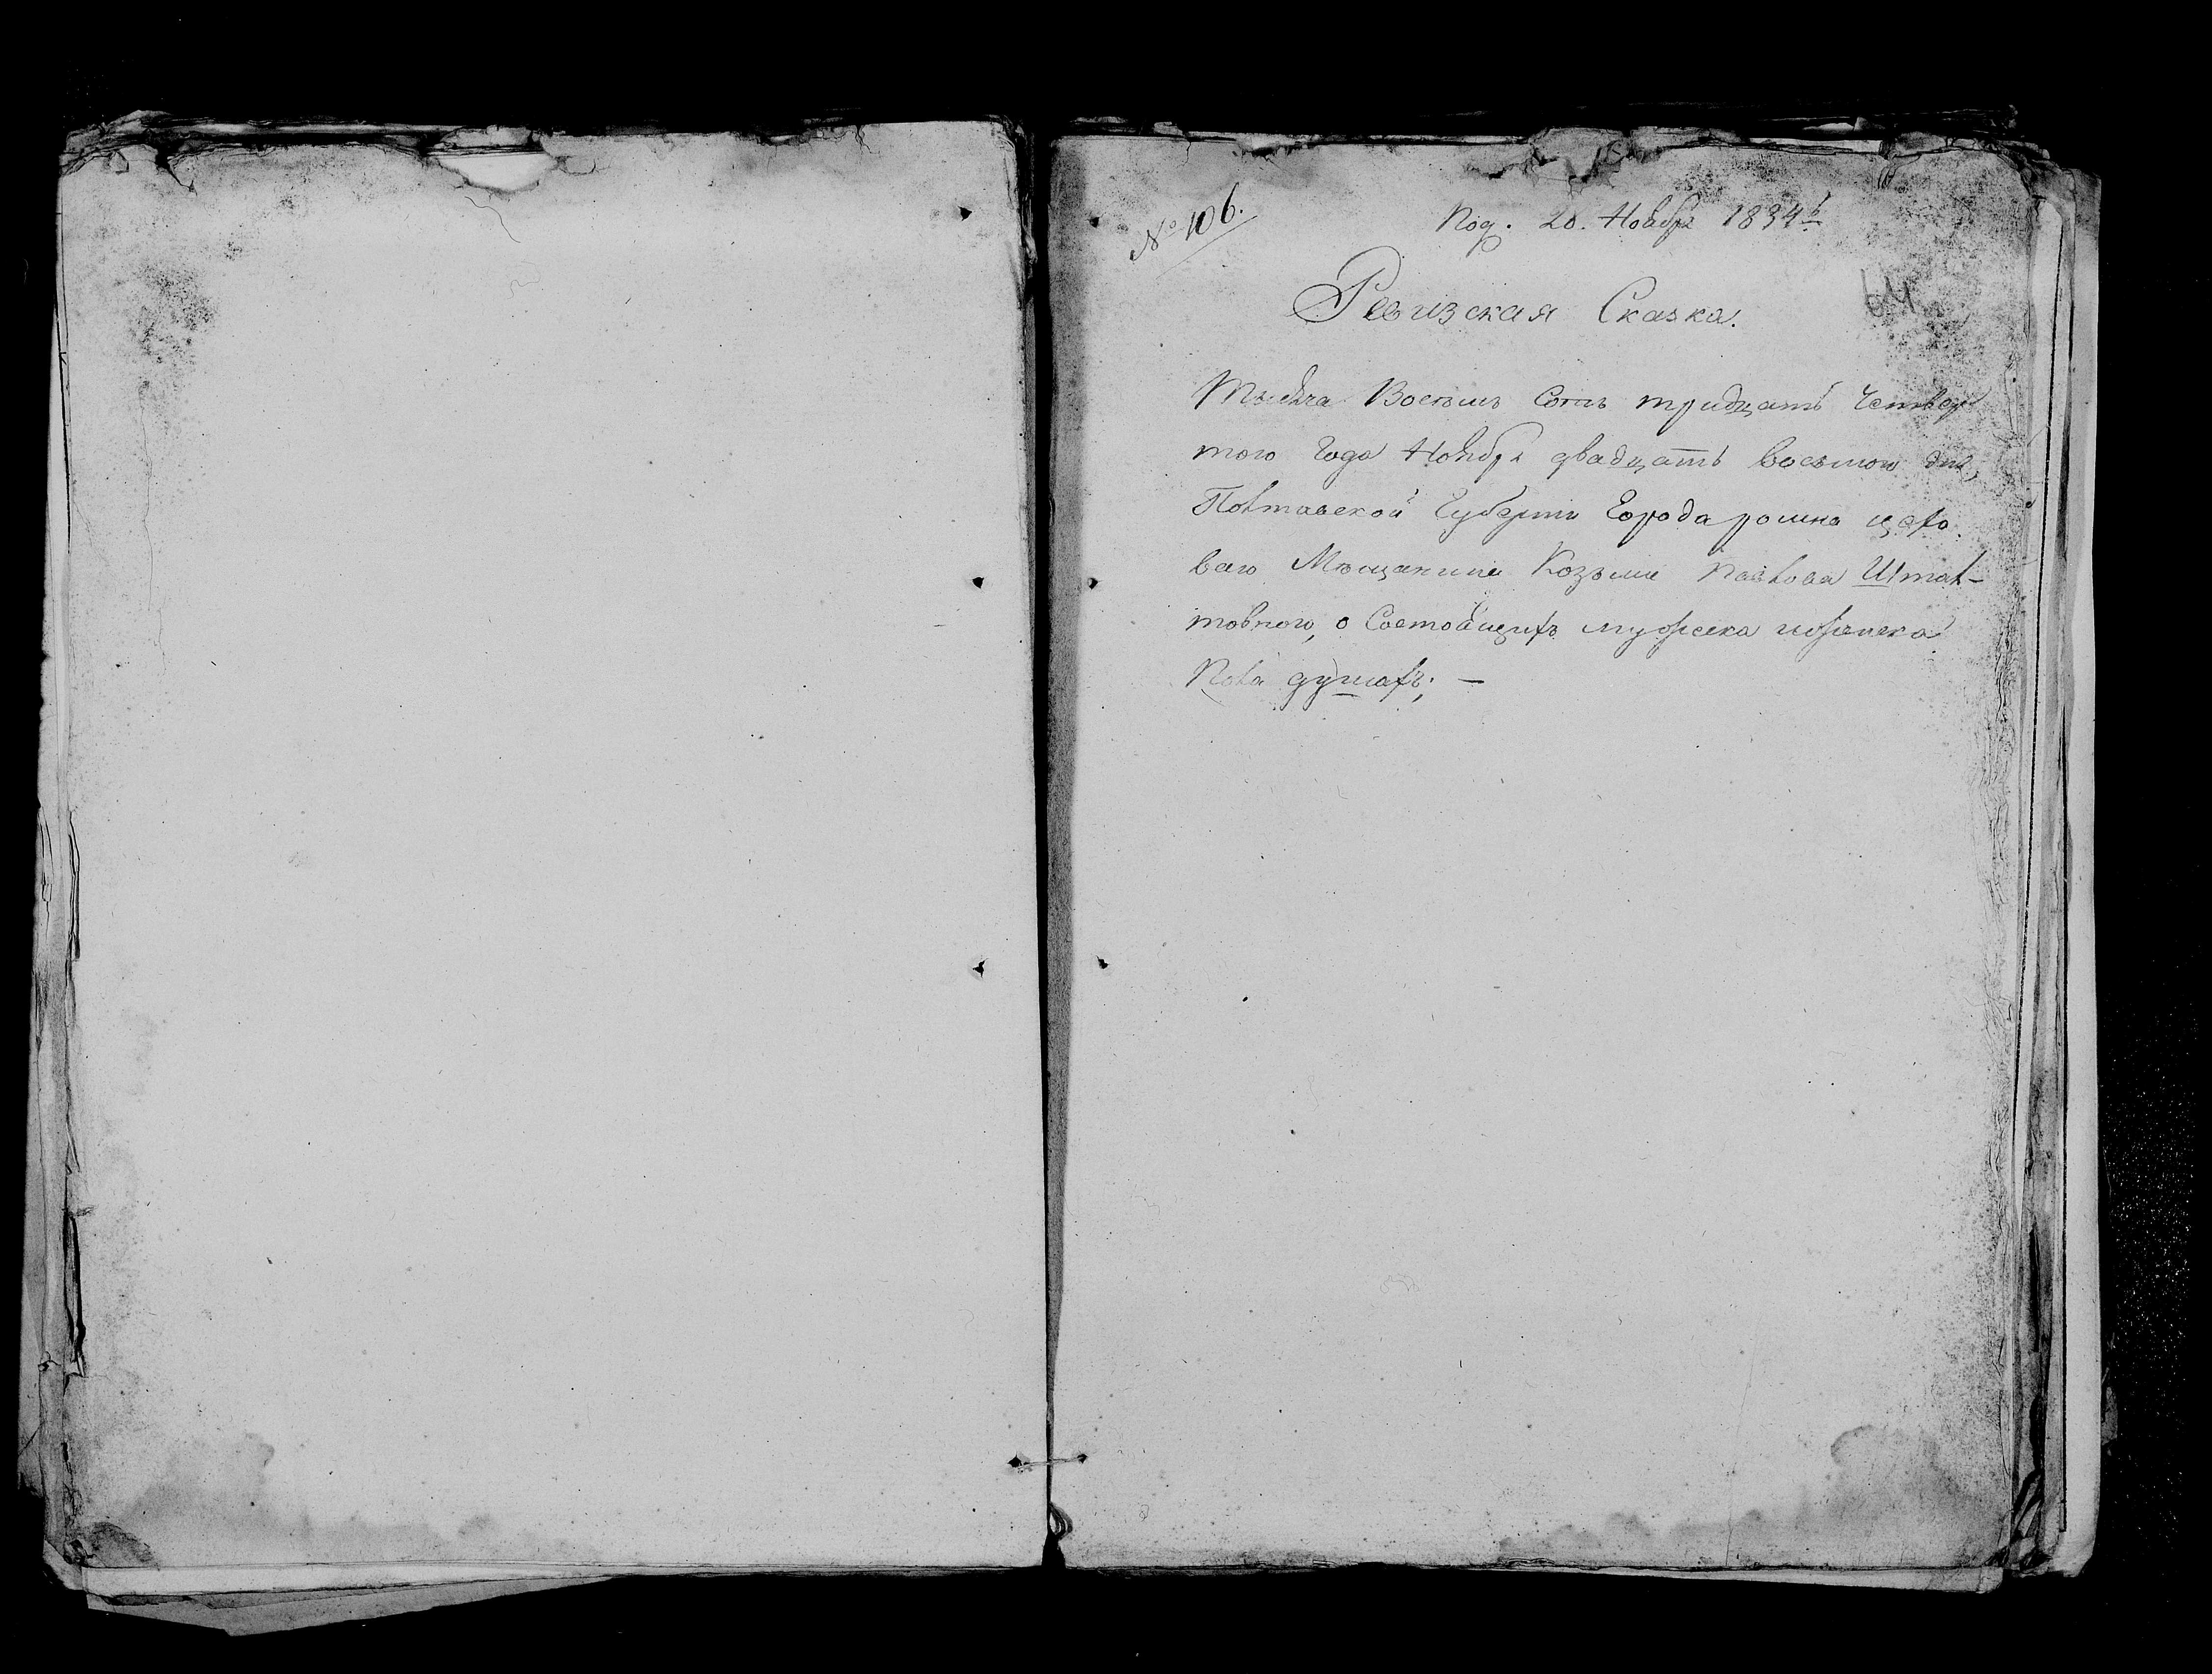 № 106.
Под. 20. Ноября 1834 г
64
Ревизская Сказка.
Тысяча Восемь Сотъ тридцать Четвер
того Года Ноября двадцать восьмого дня,
Полтавской Губерніи Города ромна цехо
ваго Мѣщанина Козьмы Павлова
о Состоящихъ мужеска иженска
пола душахъ; —